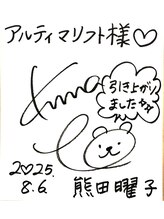 アルティマリフト様♡
引き上がり
ました☆☆
2♡25.
8.6.
熊田曜子